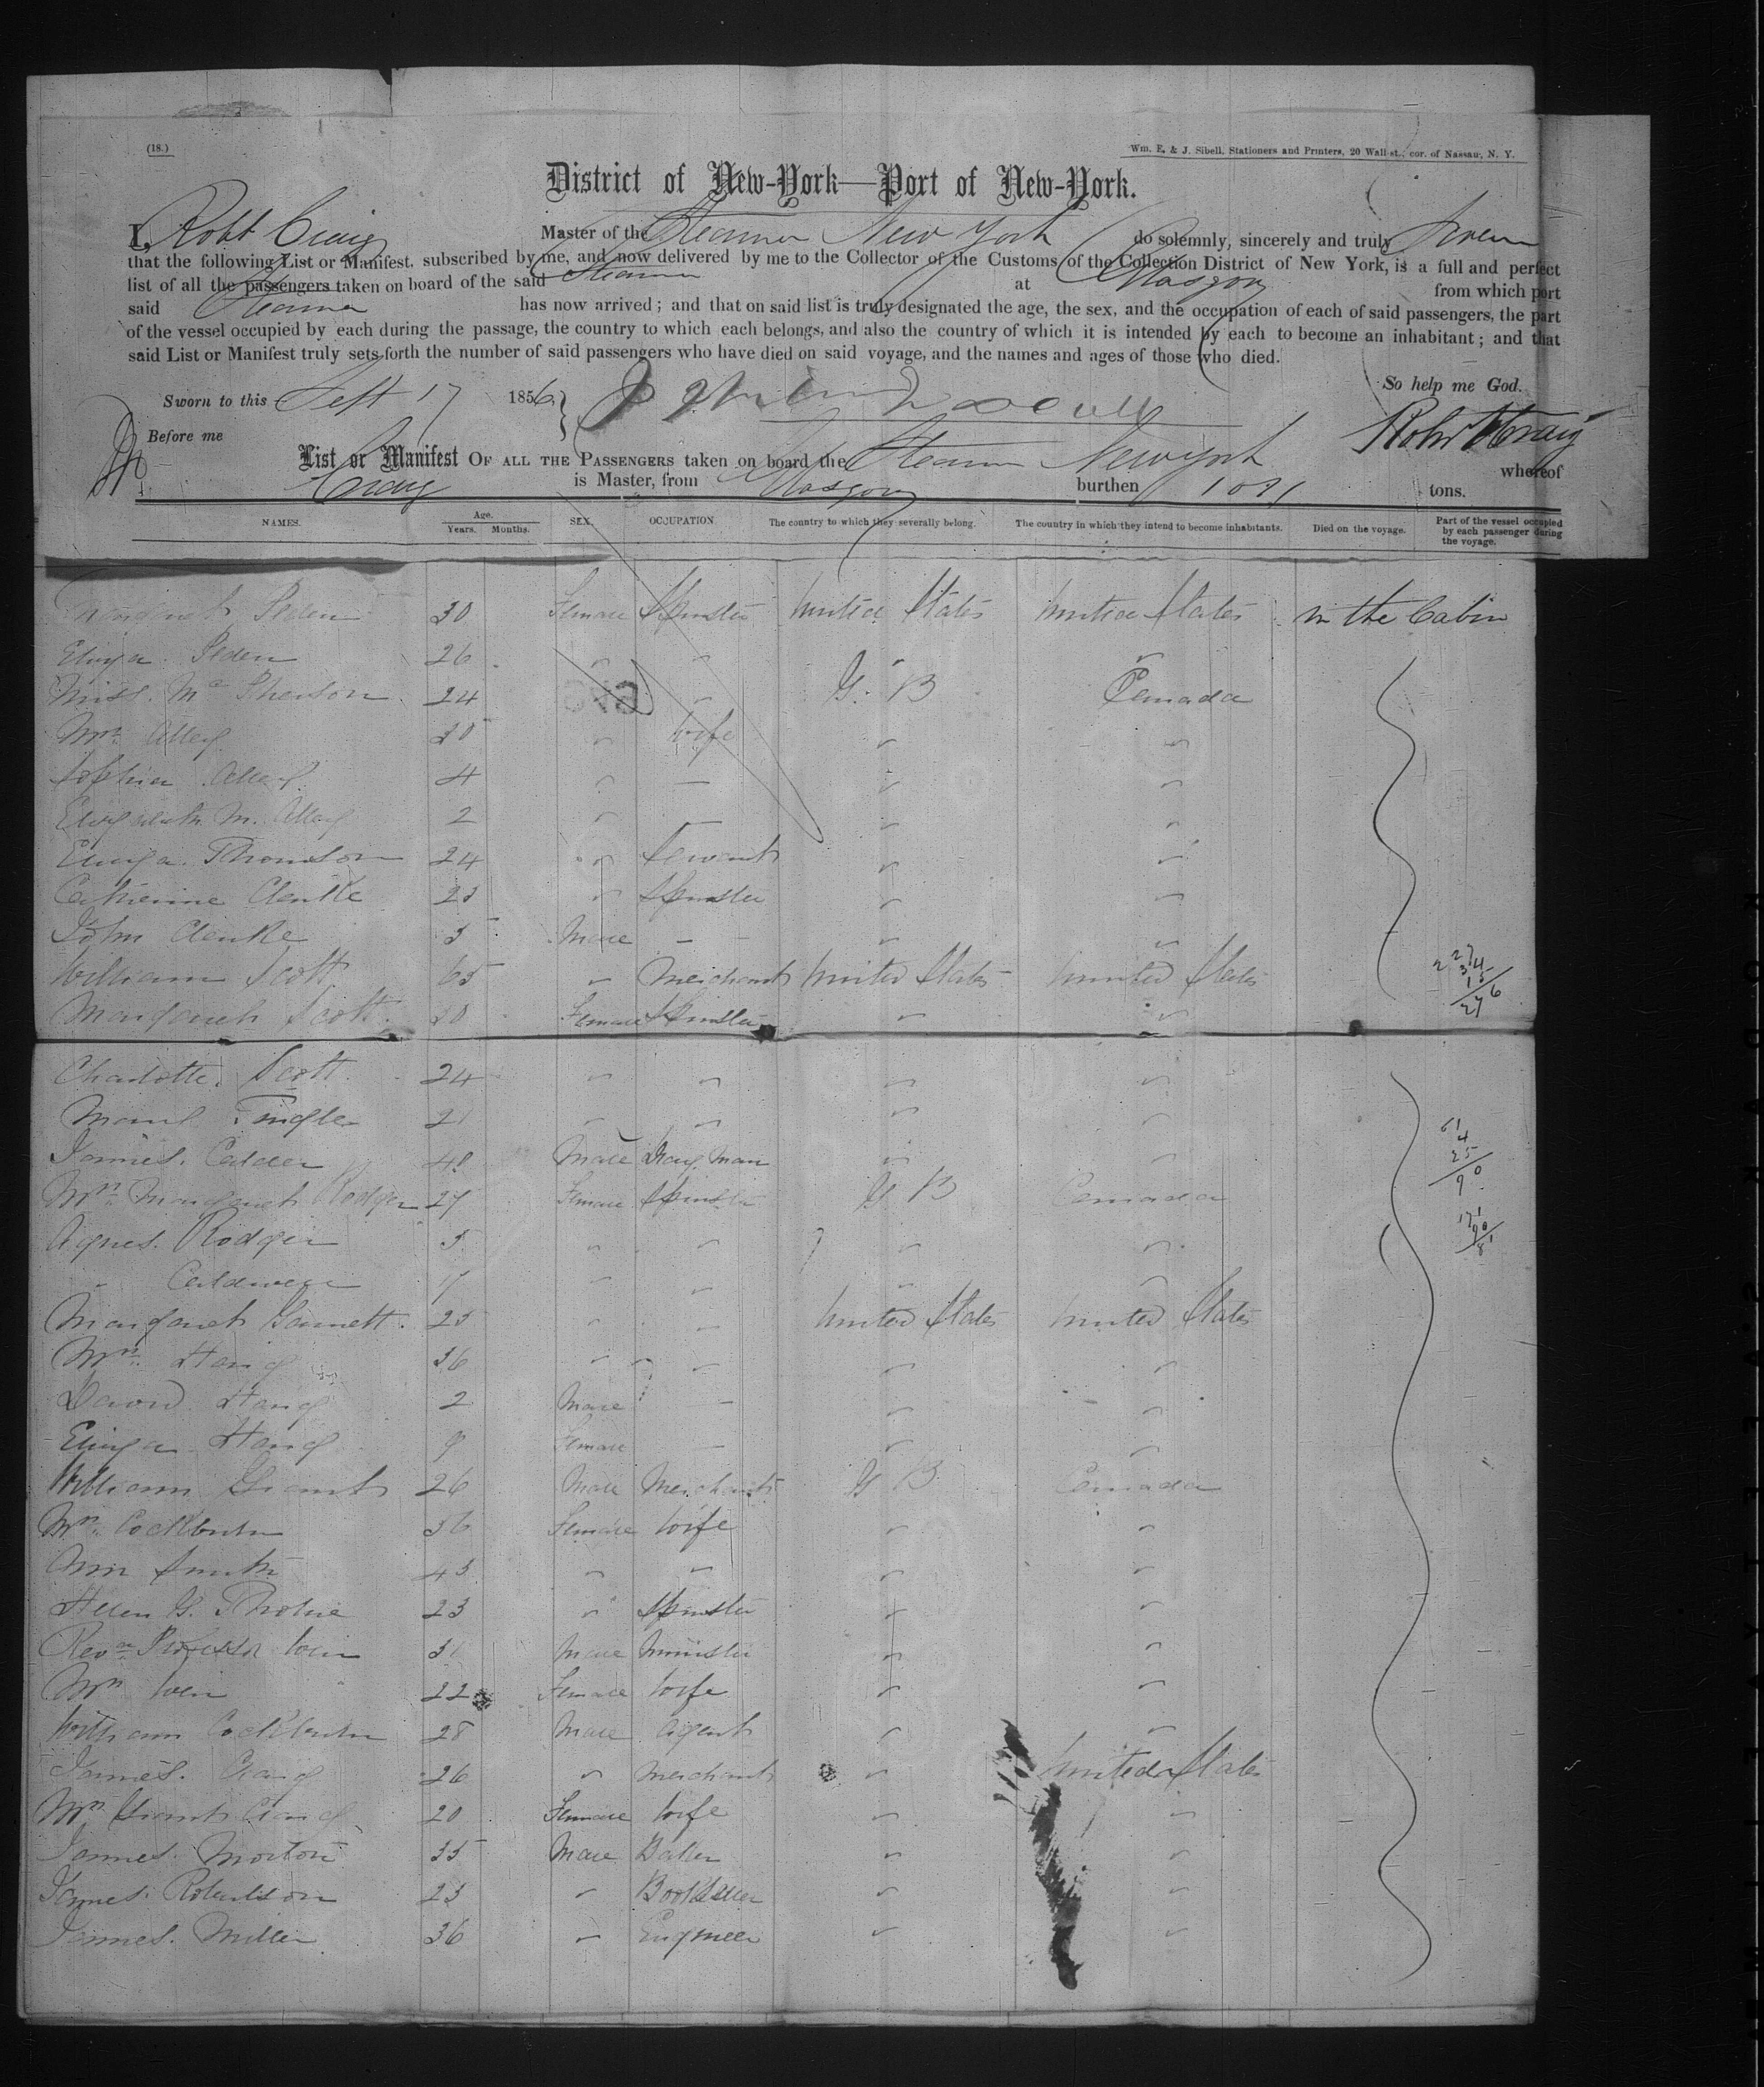 (18.)
Wm. E. & J. Sibell, Stationers and Printers, 20 Wall-st., cor. of Nassau, N. Y.
District of New-York—Port of New-York.
I, Robt Craig Master of the Steamer New York do solemnly, sincerely and truly swear
that the following List or Manifest, subscribed by me, and now delivered by me to the Collector of the Customs of the Collection District of New York, is a full and perfect
list of all the passengers taken on board of the said Steamer at Glasgow from which port
said Steamer has now arrived; and that on said list is truly designated the age, the sex, and the occupation of each of said passengers, the part
of the vessel occupied by each during the passage, the country to which each belongs, and also the country of which it is intended by each to become an inhabitant; and that
said List or Manifest truly sets forth the number of said passengers who have died on said voyage, and the names and ages of those who died.
So help me God.
Sworn to this Sept 17 1856
Before me
Robt Craig
List or Manifest OF ALL THE PASSENGERS taken on board the Steamer New York whereof
Craig is Master, from Glasgow burthen tons.
NAMES. Age. Years. Months. SEX. OCCUPATION. The country to which they severally belong. The country in which they intend to become inhabitants. Died on the voyage. Part of the vessel occupied by each passenger during the voyage.
Margaret 30 Female Spinster United States United States in the Cabin
Eliza 26 " " " "
Miss. Mc Pherson 24 " G. B Canada
Mrs. " Wife " "
Sophia 4 " — " "
Elizabeth M. 2 " — " "
Eliza Thomson 24 " Servant " "
Catherine 23 " Spinster " "
John 5 Male — " "
William Scott 65 " Merchant United States United States
Margaret Scott Female Spinster " "
Charlotte Scott 24 " " " "
Tingle 21 " " " "
James Calder 48 Male Dray Man " "
Mrs. Margaret Rodger 27 Female Spinster G B Canada
Agnes Rodger 5 " " " "
" Caldwell 17 " " " "
Margaret 25 " " United States United States
Mrs. Haig 36 " " " "
David Haig 2 Male — " "
Eliza Haig 9 Female — " "
William Grant 26 Male Merchant G B Canada
Mrs. Cockburn 36 Female Wife " "
Smith 43 " " " "
Helen G. 23 " Spinster " "
Revd. Professor Weir 31 Male Minister " "
Mrs Weir 22 Female Wife " "
William Cockburn 28 Male Agent " "
James Craig 26 " Merchant " United States
Mrs Craig 20 Female Wife " "
James Morton 35 Male Baker " "
James Robertson 23 " Bookseller " "
James Miller 36 " Engineer " "
227
34
15
276
61
4
25
90
171
90
81